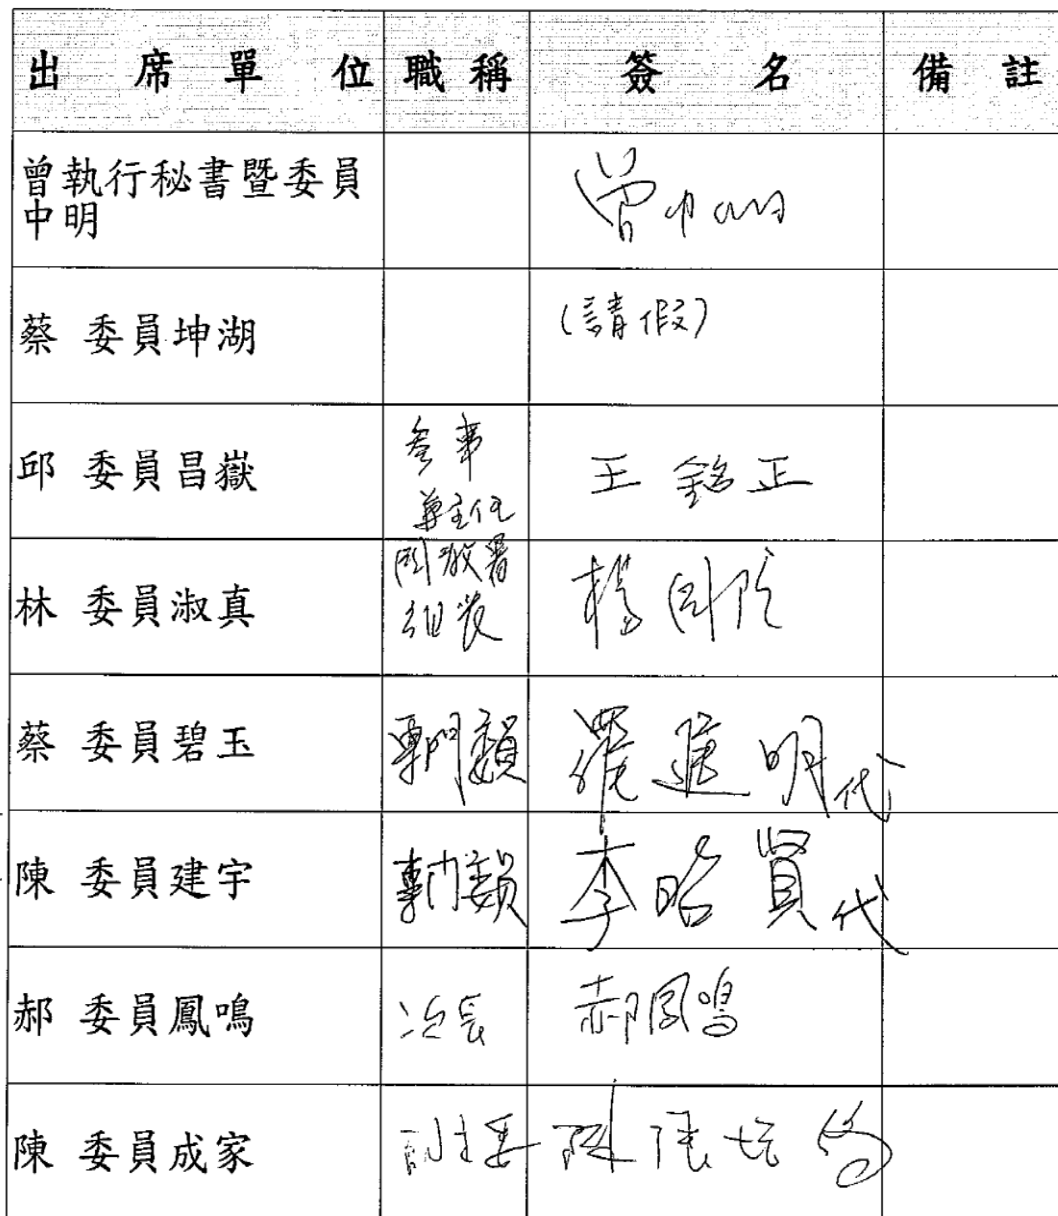 出席單位 職稱 簽名 備註
曾執行秘書暨委員
中明
曾中明
蔡 委員坤湖
(請假)
邱 委員昌嶽
參事
兼主任
王銘正
林 委員淑真
國教署
組長
楊國隆
蔡 委員碧玉
專門委員
羅進明代
陳 委員建宇
專門委員
李昭賢代
郝 委員鳳鳴
次長
郝鳳鳴
陳 委員成家
副主委
陳